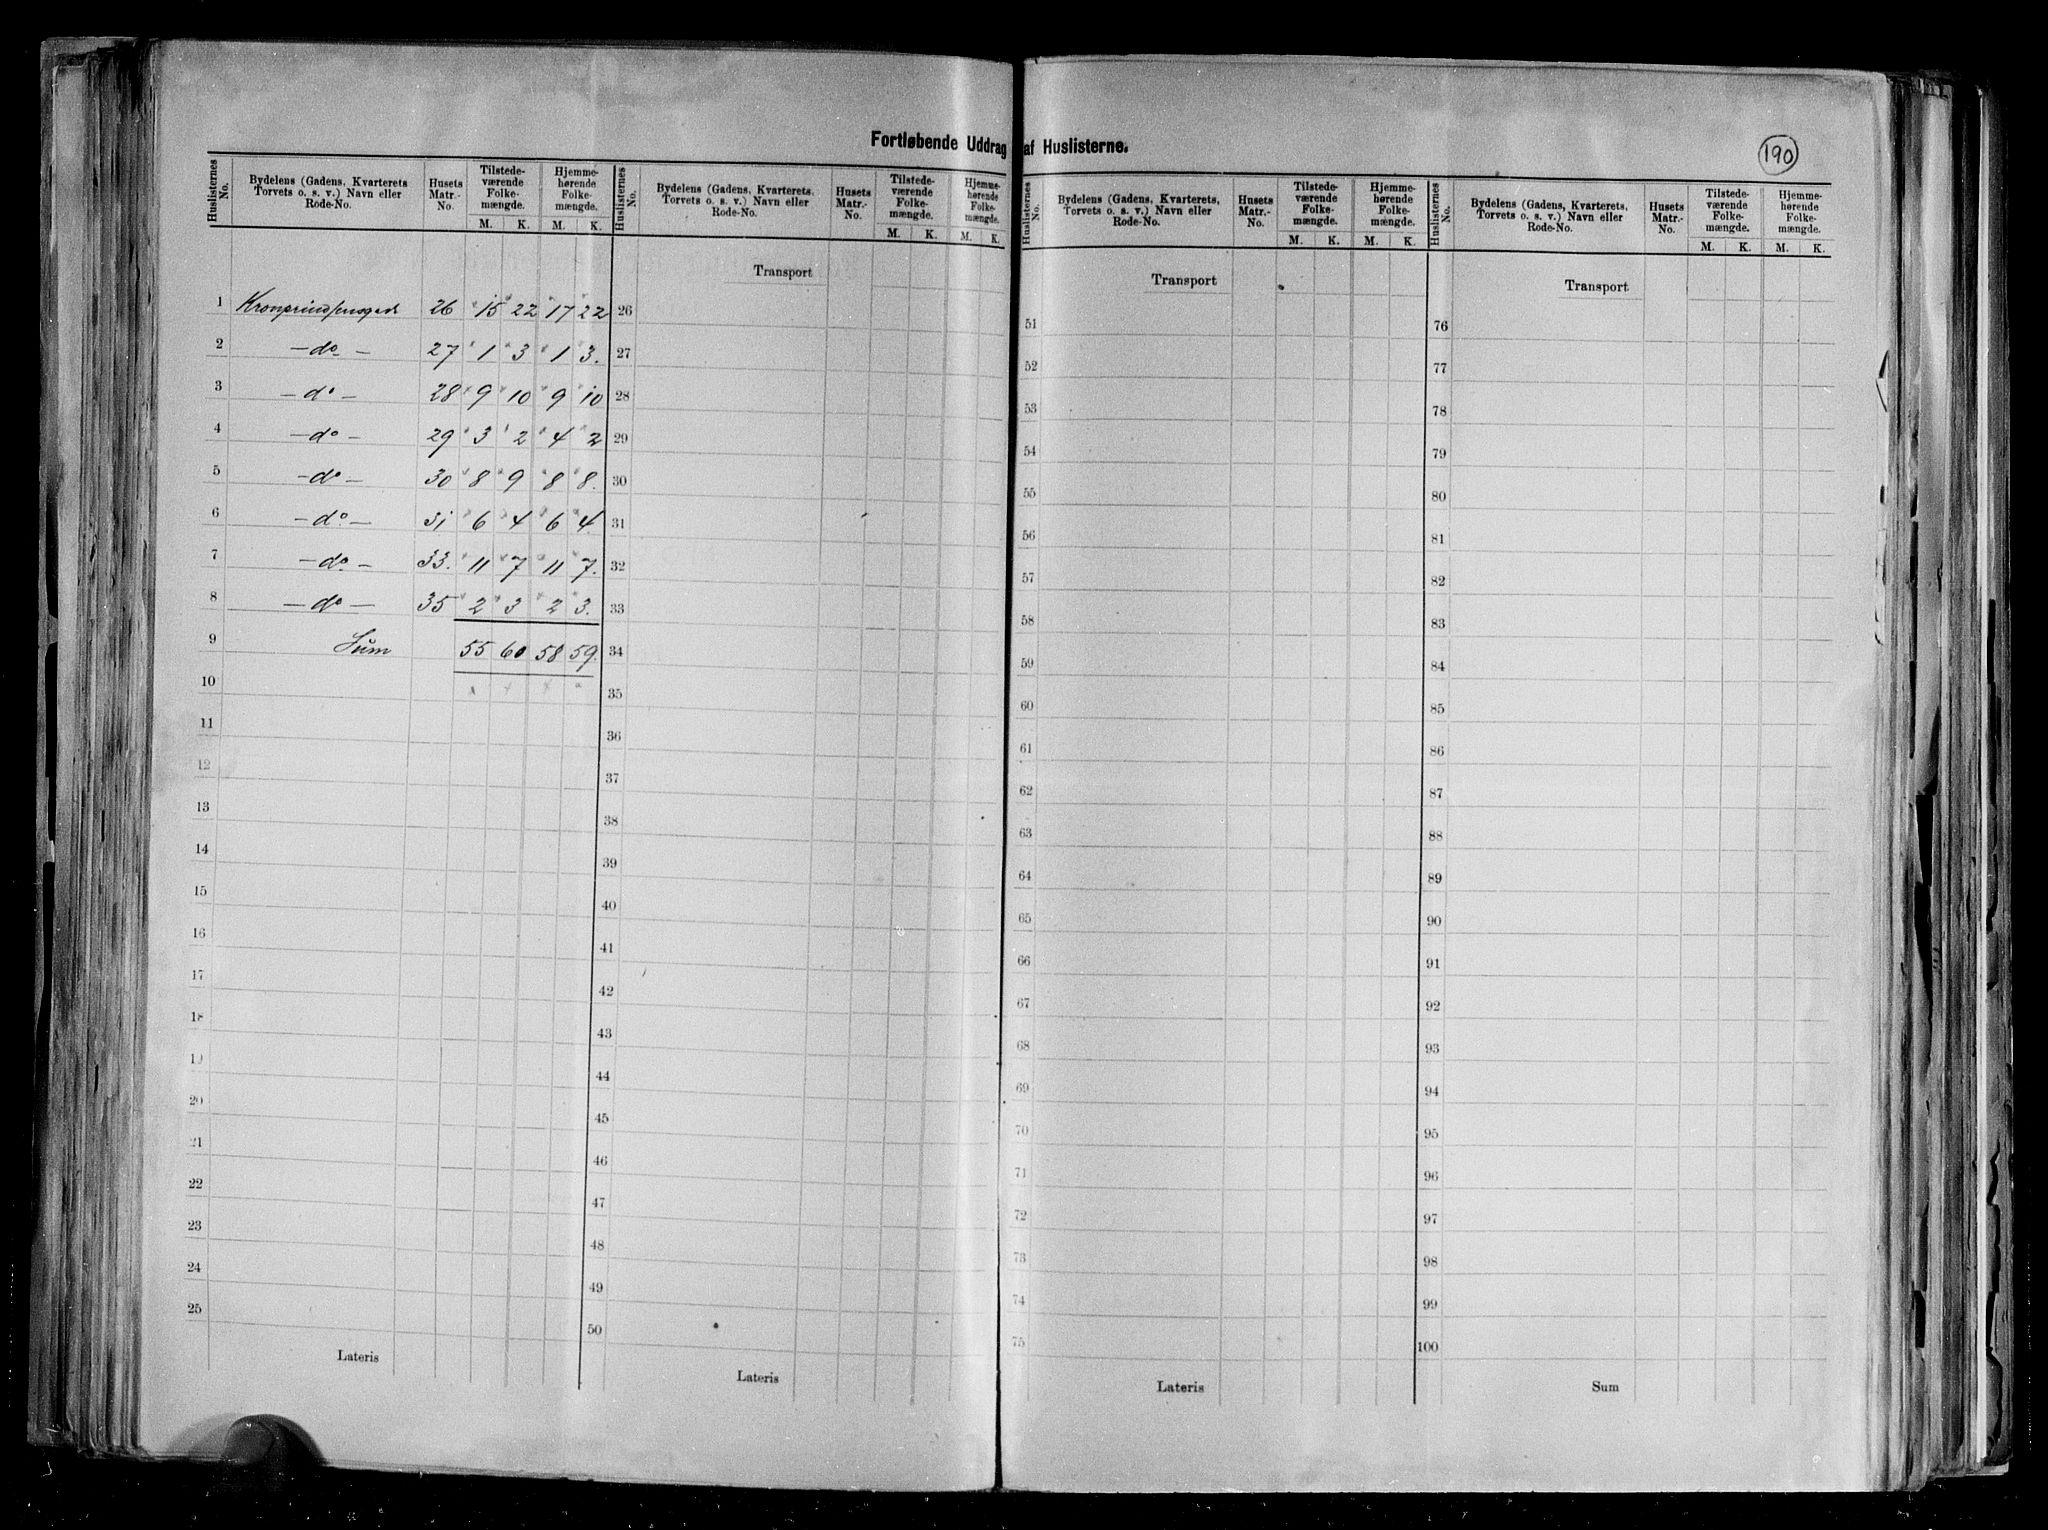 Fortløbende Uddrag af Huslisterne.
190
Huslisternes No. Bydelens (Gadens, Kvarterets Torvets o. s. v.) Navn eller Rode-No. Husets Matr.-No. Tilstedeværende Folkemængde. M. K. Hjemmehørende Folkemængde. M. K.
1 Kronprindsensgade 26 15 22 17 22
2 -do- 27 1 3 1 3.
3 -do- 28 9 10 9 10
4 -do- 29 3 2 4 2
5 -do- 30 8 9 8 8.
6 -do- 31 6 4 6 4.
7 -do- 33. 11 7 11 7.
8 -do- 35 2 3 2 3.
9 Sum 55 60 58 59.
10
11
12
13
14
15
16
17
18
19
20
21
22
23
24
25
Lateris
Huslisternes No. Bydelens (Gadens, Kvarterets, Torvets o. s. v.) Navn eller Rode-No. Husets Matr.-No. Tilstedeværende Folkemængde. M. K. Hjemmehørende Folkemængde. M. K.
Transport
26
27
28
29
30
31
32
33
34
35
36
37
38
39
40
41
42
43
44
45
46
47
48
49
50
Lateris
Huslisternes No. Bydelens (Gadens, Kvarterets, Torvets o. s. v.) Navn eller Rode-No. Husets Matr.-No. Tilstedeværende Folkemængde. M. K. Hjemmehørende Folkemængde. M. K.
Transport
51
52
53
54
55
56
57
58
59
60
61
62
63
64
65
66
67
68
69
70
71
72
73
74
75
Lateris
Huslisternes No. Bydelens (Gadens, Kvarterets, Torvets o. s. v.) Navn eller Rode-No. Husets Matr.-No. Tilstedeværende Folkemængde. M. K. Hjemmehørende Folkemængde. M. K.
Transport
76
77
78
79
80
81
82
83
84
85
86
87
88
89
90
91
92
93
94
95
96
97
98
99
100
Sum